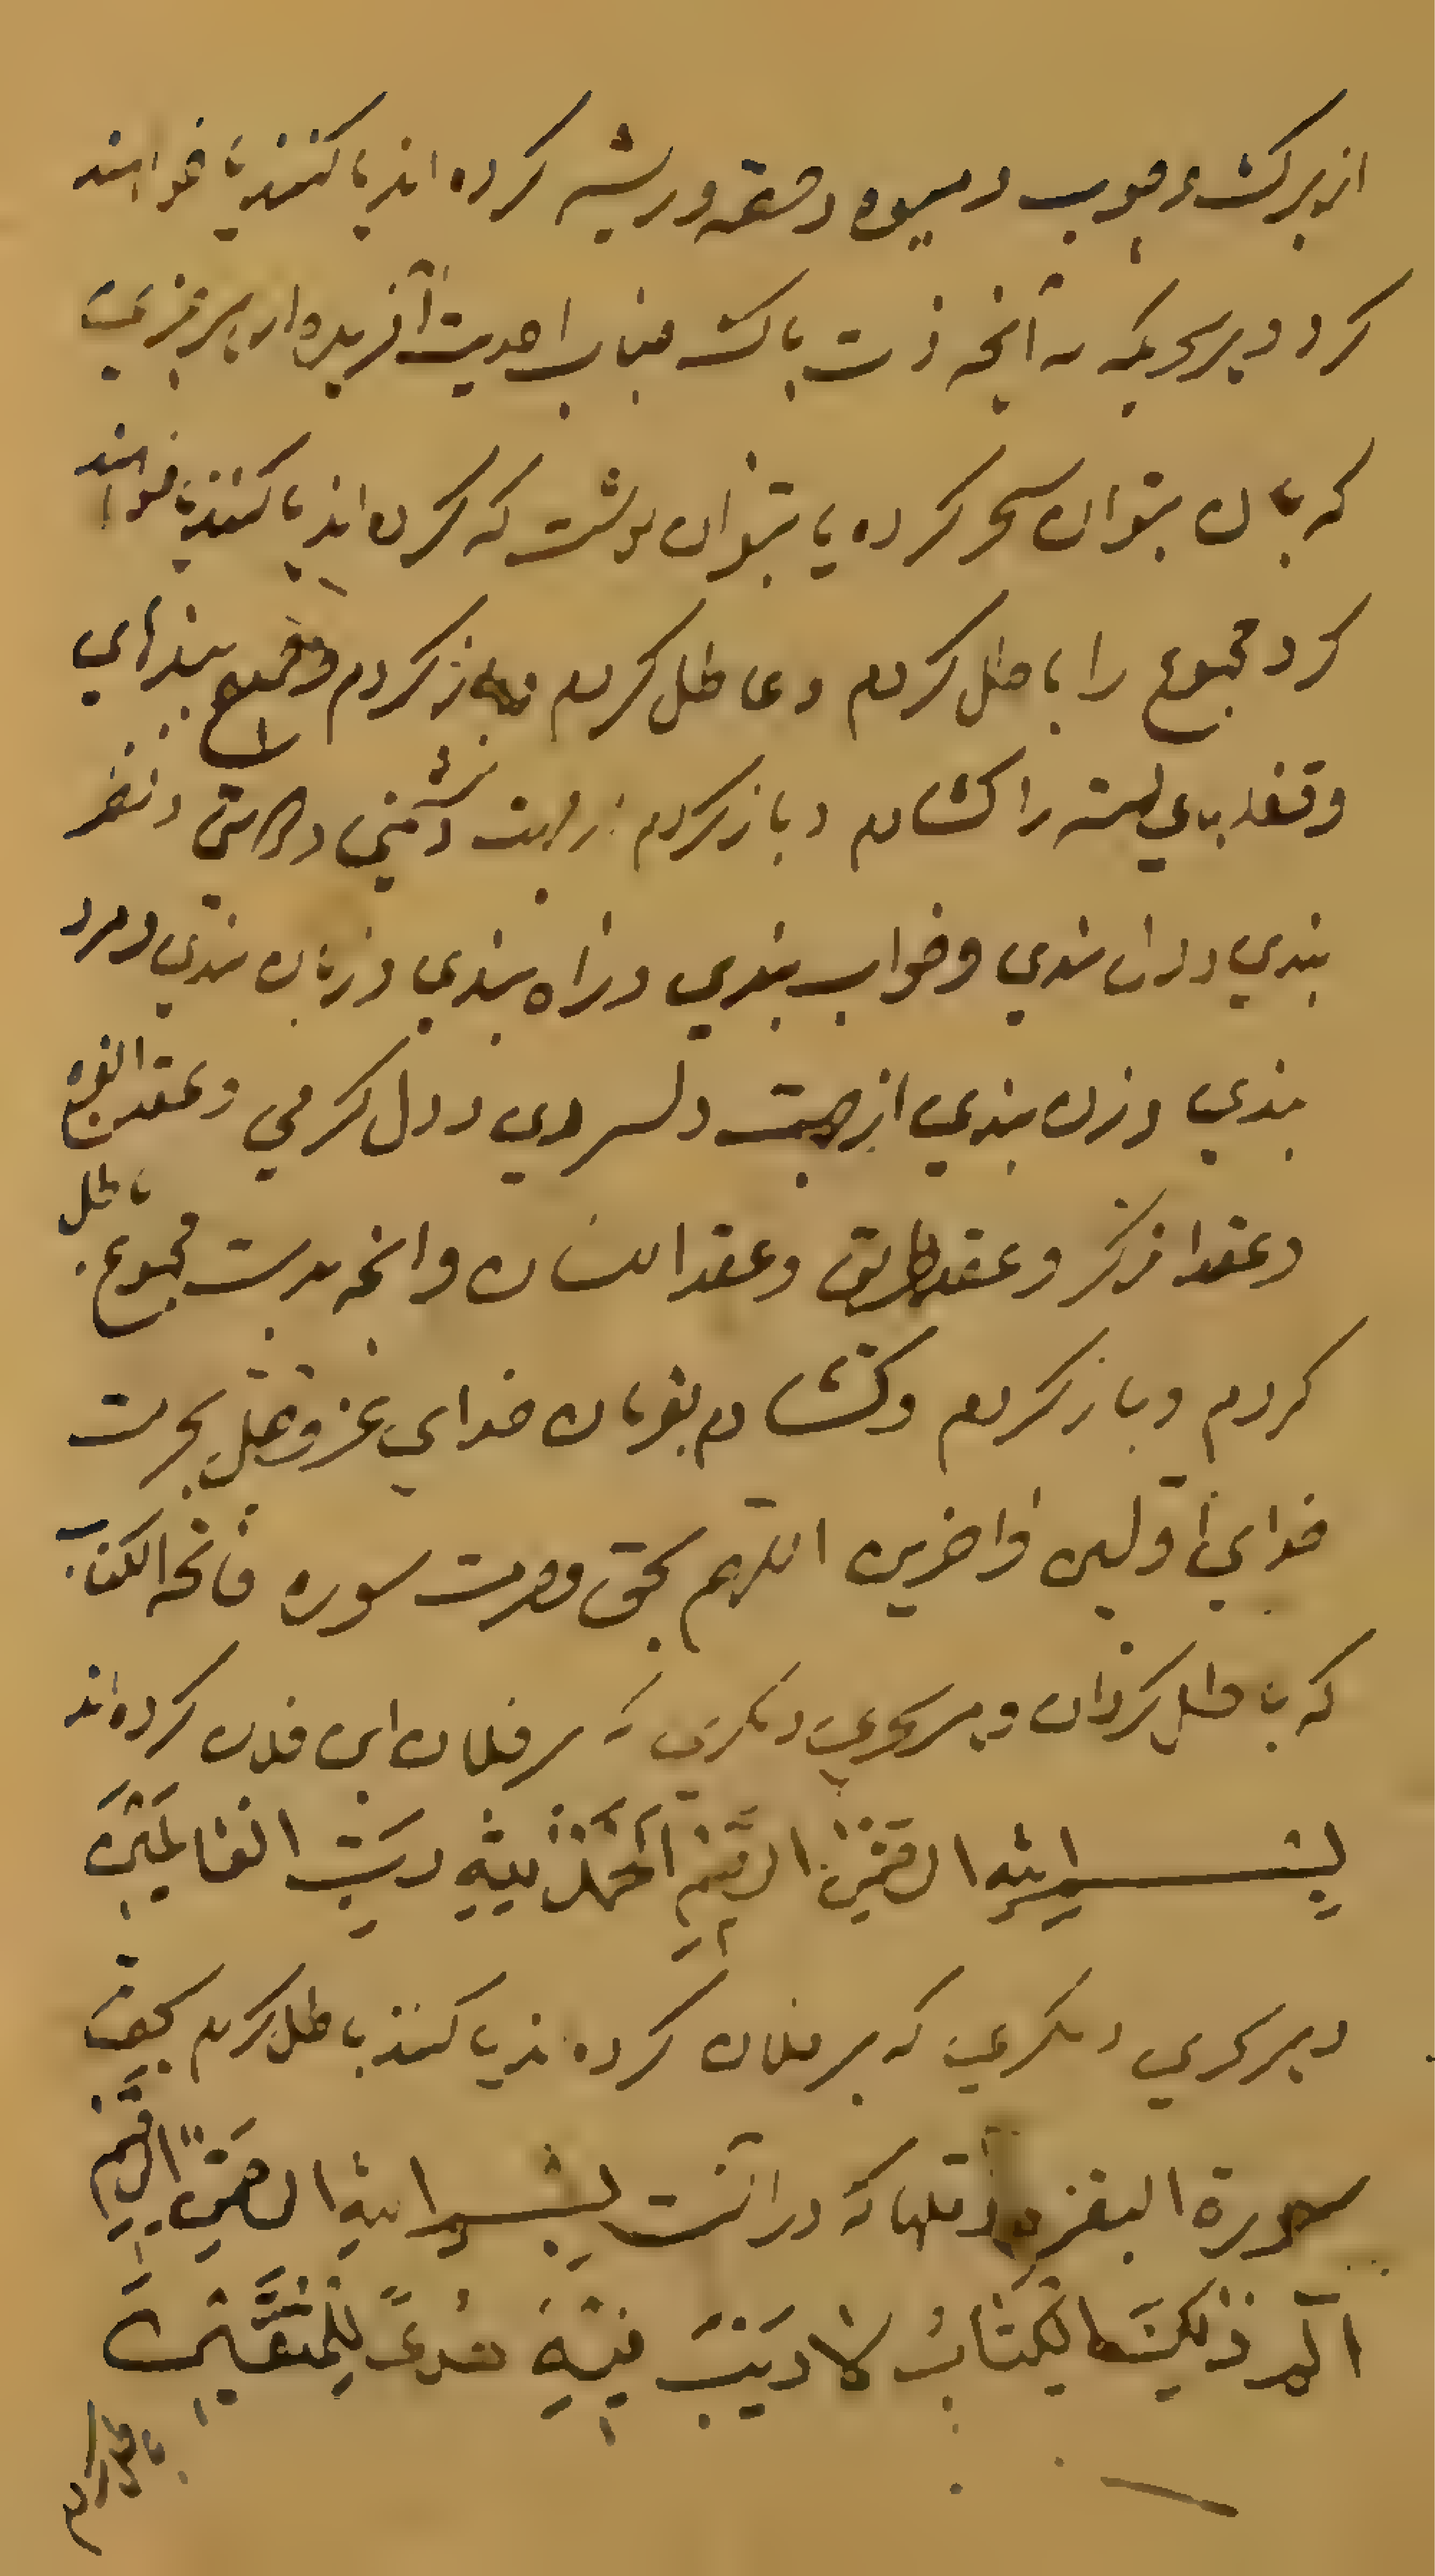 از برک و چوب و میوه و شقه و ریشه کرده اند یا کنند یا خواهند
کرد و هر سحریکه به آنچه ذت پاک جناب احدیت آفریده از هر چیزی
که بان بتوان سحر کرده یا بتوان نوشت که کرده اند یا کنند یا خواهند
کرد مجموع را باطل کردم و عاطل کردم و باز کردم و جمیع بندهای
و قفلهای بسته را کشادم و باز کردم از جهت دشمنی و نظر
بندی و ران بندی و خواب بندی و راه بندی و زبان بندی و مرد
بندی و زن بندی از جهت دلسردی و دل کرمی و عقد الفرج
و عقد الذکر و عقد الطریق و عقد اللسان و انچه بدست مجموع باطل
کردم و باز کردم و کشادم بفرمان خدای عز و جل بحرمت
خدای اولین و اخرین اللهم بحق و حرمت سوره فاتحه الکتاب
که باطل کردان و هر سحری و مکری که بر فلان ابن فلان کرده اند
بسم الله الرحمن الرحیم الحمد لله رب العالمین
و هر سحری و مکری که بر فلان کرده اند یا کنند باطل کردم بحق
سورة البقر که در آنست بسم الله الرحمن الرحیم
الم ذلک الکتاب لا ریب فیه هدی للمتقین
باطل کردم